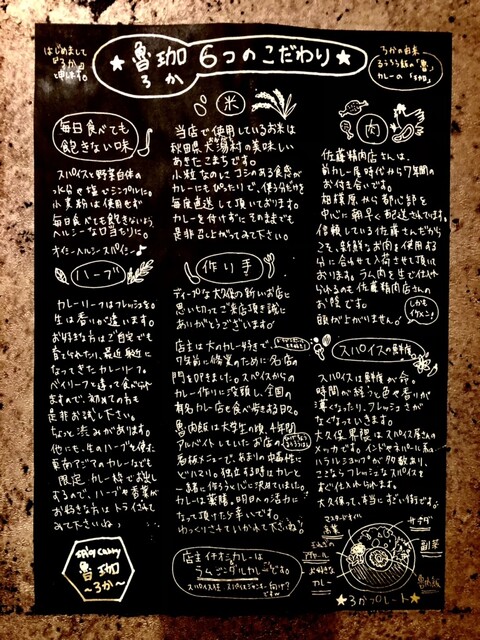 はじめまして
「ろか」
と申します。
★ 魯珈 6つのこだわり ★
ろか
ろかの由来
るうろう飯の「魯」
カレーの「珈」
毎日食べても
飽きない味
スパイスと野菜自体の
水分や塩でシンプルに。
小麦粉は使用せず
毎日食べても飽きないよう
ヘルシーな口当たりに。
オイシーヘルシースパイシー♪
ハーブ
カレーリーフはフレッシュを。
生は香りが違います。
お好きな方はご自宅でも
育てられたり、最近身近に
なってきたカレーリーフ。
ベイリーフと違って食べられ
ますので、初めての方も
是非お試し下さい。
ちょっと渋みがあります。
他にも、生のハーブを使った
東南アジアのカレーなども
限定カレー枠でお出し
するので、ハーブや香菜が
お好きな方はトライされて
みて下さいね♪
spicy curry
魯珈
~ろか~
米
当店で使用しているお米は
秋田県大潟村の美味しい
あきたこまちです。
小粒なのにコシのある食感が
カレーにもぴったりで、使う分だけを
毎度直送して頂いております。
カレーを付けずにそのままでも
是非召し上がってみて下さい。
作り手
ディープな大久保の新しいお店に
思い切ってご来店頂き誠に
ありがとうございます。
店主は大のカレー好きで、
7年前に修業のために名店の
門を叩きました。スパイスからの
カレー作りに没頭し、全国の
有名カレー店を食べ歩きする日々。
魯肉飯は大学生の頃、4年間
アルバイトしていたお店の
看板メニューで、あまりの中毒性に
ドハマリ。独立する時はカレーと
一緒に作ろうと心に決めていました。
カレーは薬膳。明日への活力に
なって頂けたら幸いです。
ゆっくりさせていかれて下さいね。
店主イチオシカレーは
ラムビンダルカレーです。
スパイス狂、スパイスジャンキー向け?
ですw
肉
佐藤精肉店さんは、
前カレー屋時代から7年間の
お付き合いです。
相模原から都心卸を
中心に朝早く配送されてます。
信頼している佐藤さんだから
こそ、新鮮なお肉を使用する
分に合せて入荷させて頂いて
おります。ラム肉も生で仕入れ
られるのは佐藤精肉店さんの
お陰です。
頭が上がりません。
しかも
イケメン!
スパイスの鮮度
スパイスは鮮度が命。
時間が経つと色や香りが
薄くなったり、フレッシュさが
なくなっていきます。
大久保界隈はスパイス屋さんの
メッカです。インドやネパール系の
ハラルショップが多数あり、
ここならフレッシュなスパイスを
すぐ仕入れられます。
大久保って、本当にすごい街です。
マスタードオイル
高菜
サラダ
アチャール
お好きな
カレー
副菜
魯肉飯
★ろかプレート★